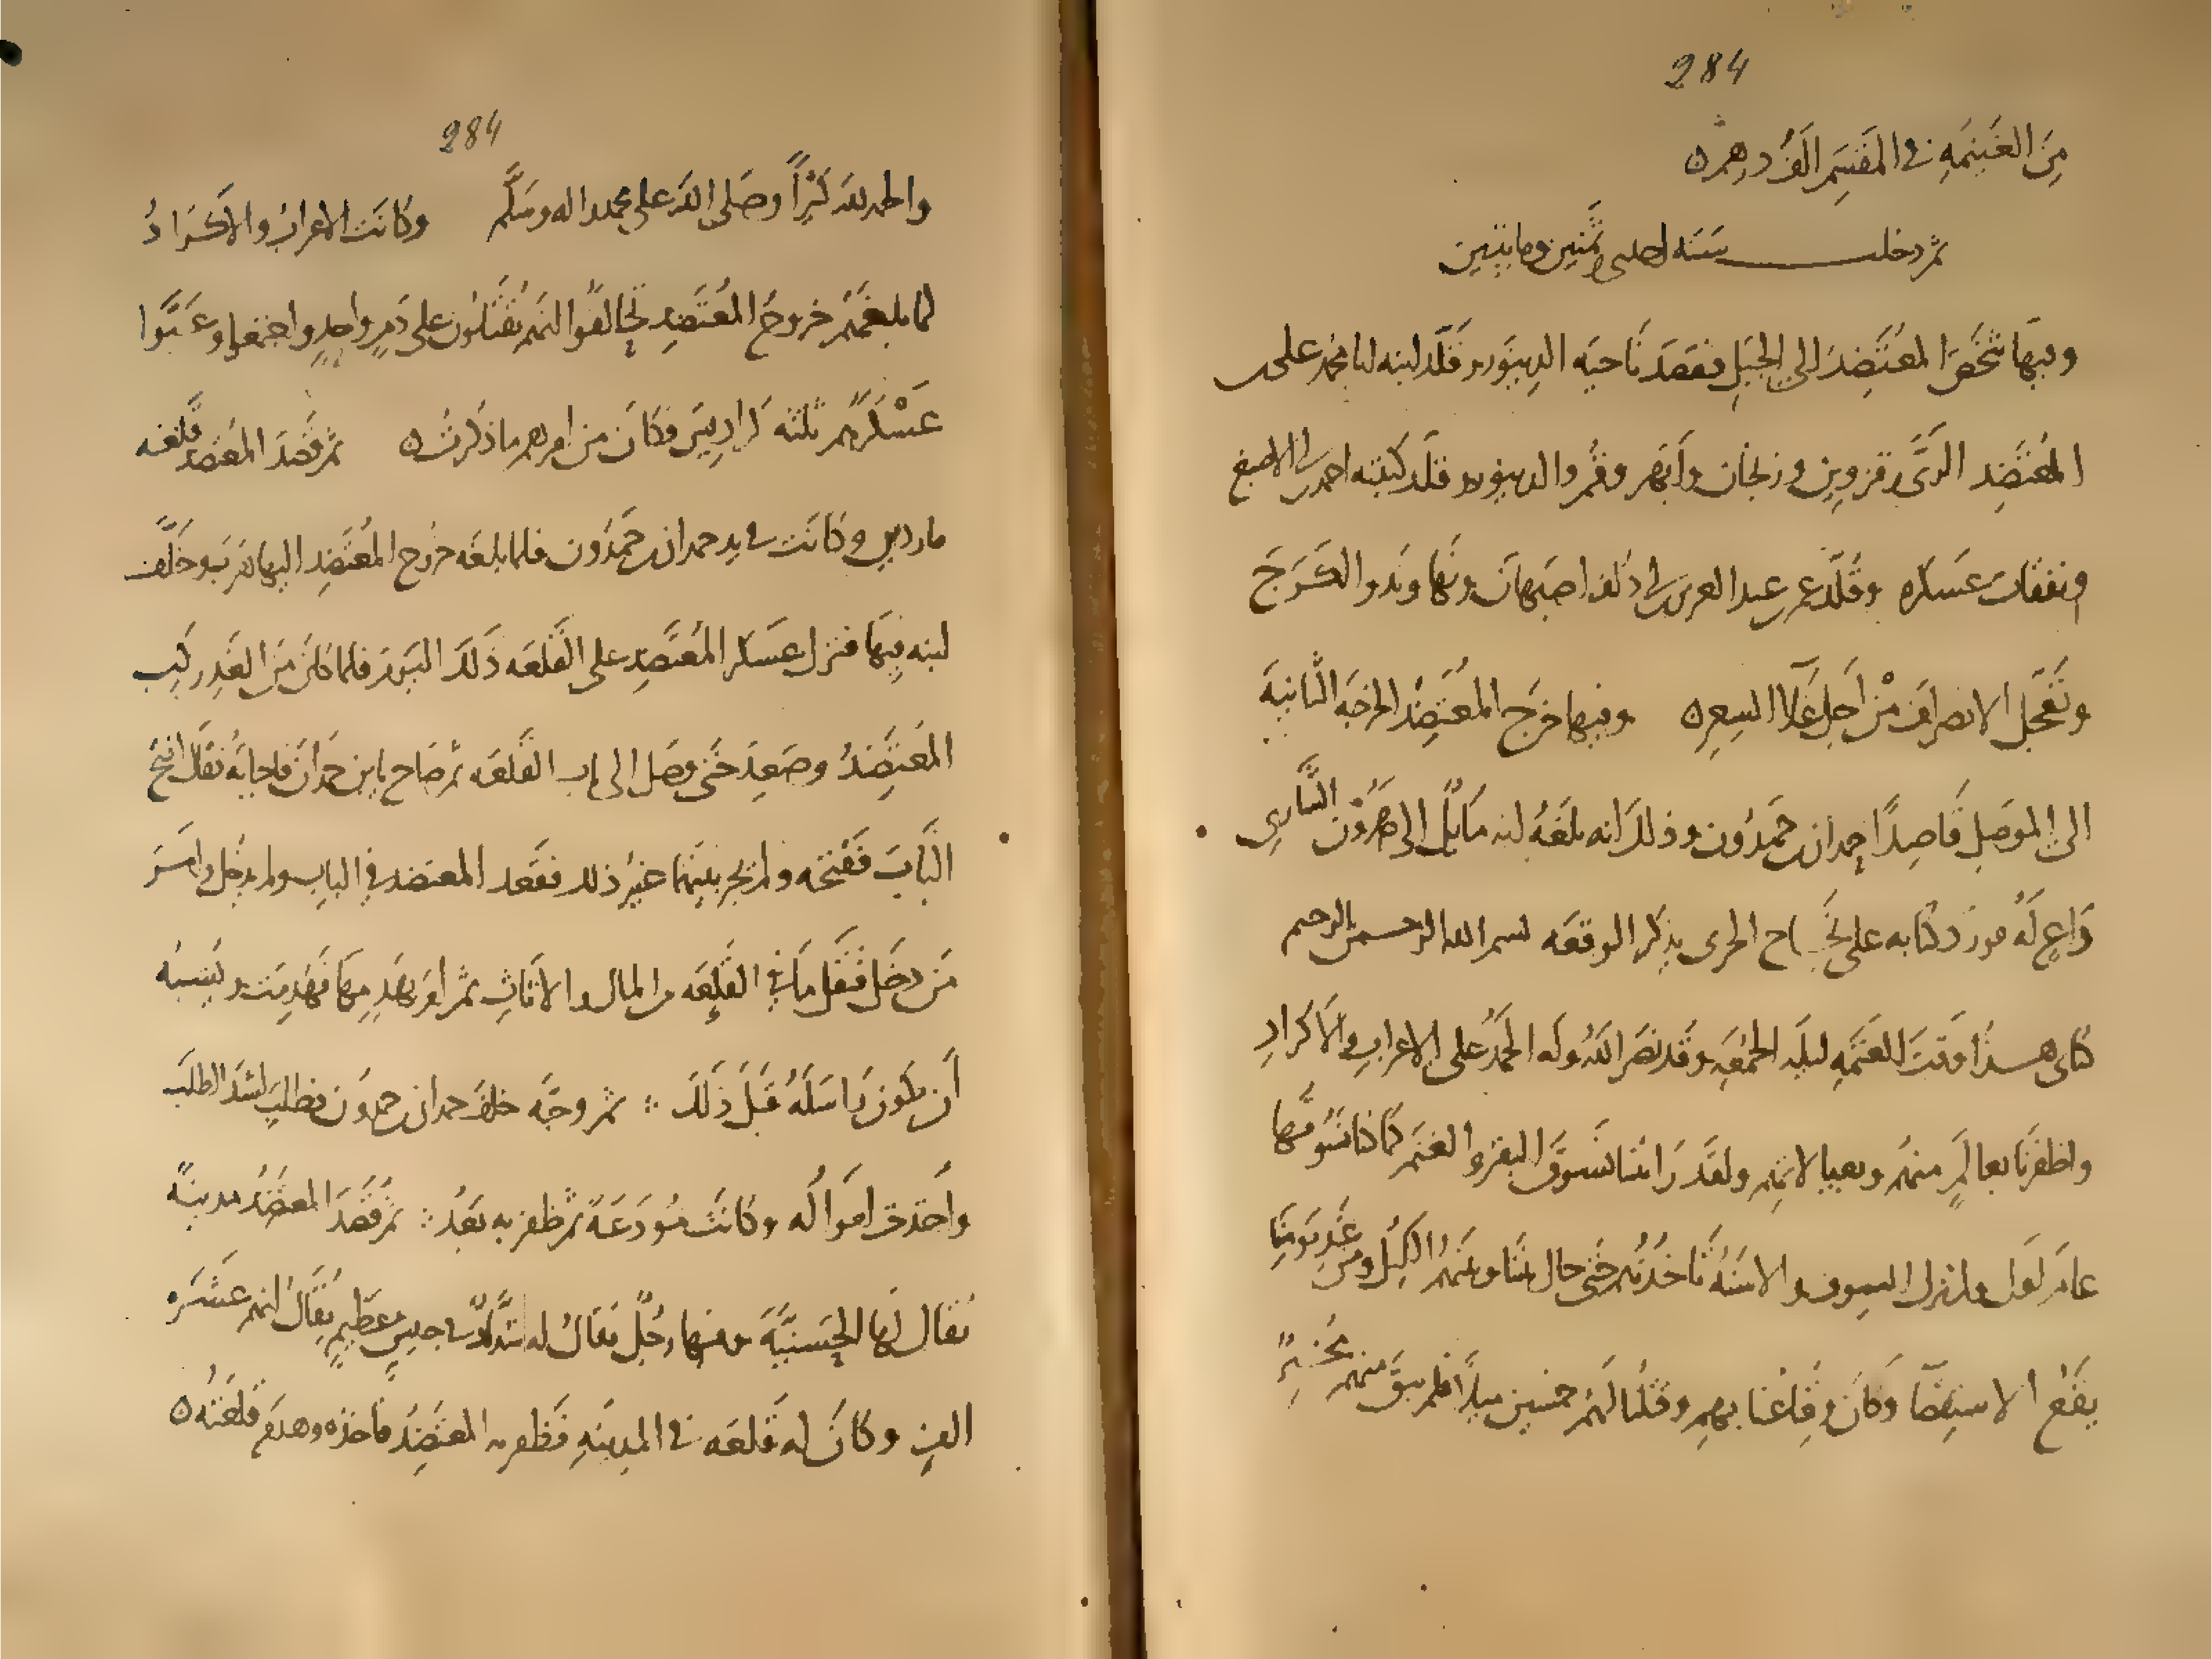 284
مِنَ الغَنيمَهِ فى المَقسِمِ الفُ دِرهم ه
ثم دخلت سَنَه احدى وثَمنين ومايتين
وفيها شَخَصَ المعُتَضِدُ الى الجَبَلِ فقصَدَ نَاحيَه الدِينَور وقَلَّد ابنه ابا محمد على بن
المُعتَضِد الرَىَّ وقزوين وزنجان وأبهَر وقُمَّ والدينور وقلّد كتبته احمد بن الاصبغ
ونفقات عَسكره وقَلَّد عمر بن عبد العزيز بن ابى دُلَف اصبَهانَ ونَهاوَندَ والكَرَجَ
وتَعَجَّل الانصرافَ مْن اَجلِ غَلآ السعرِ ه وفيها خرَج المُعتَضِدُ الخرجَه الثَانيَه
الى المَوصِلِ قَاصِدًا لحمدان بن حَمدُون وذلك انه بلغَهُ انه مَايلٌ الى هَرُون الشارى
دَاعٍ لَهُ فورَدَ كتابه على نَجَاح الحرمى بذِكرِ الوقعَه بسم الله الرحمن الرحيم
كتابى هـذا وقتَ العَتَمهِ ليلَه الجمُعَهِ وقَد نصَر اللهُ وَله الحَمدُ على الاعرابِ والاَكرادِ
واظفرَنا بعالَمٍ منهُم وبعيالاتِهم ولقَد رَايتُنا نسُوقُ البقَر والغنَم كما كنا نسُوقُها
عامًا اول ولم تزل السيوف والاسنَّهُ تَاخذُهُم حَتى حال بيننا وبينَهُم الليلُ ومن غَدِ يَومِنا
يقَعُ الاستِقصَا وكان وقاعُنا بهِم وقتلُنا لهُم خمسين ميلاً فلم يبقَ منهم مخبِرٌ
284
والحمد لله كثيرًا وصَلى الله على محمد واله وسَلَّم وكانَت الاعرابُ والاكرَادُ
لما بلغَهُم خروجُ المُعتَضِدِ تحالفُوا انَهُم يُقتَلُون على دَمٍ واحِدٍ واجتمعُوا وعَبَّوا
عَسْكَرَهُم ثلثَه كرادِيسَ فكان من امرهم ما ذكرتُ ه ثم قصَدَ المُعتضد قلعَه
ماردين وكانَت فى يد حمدان بن حَمدُون فلما بلغَه خرُوج المُعتَضِد اليها هَربَ وخَلَّف
ابنه فيها فنزل عَسكر المُعتَضِدِ على القَلعَه ذَلكَ اليَومَ فلما كان مِنَ الغَدِ ركِب
المُعتَضِدُ وصَعِدَ حَتى وصَل الى باب القَلعَه ثم صَاح يا بن حَمدانَ فاجابَهُ فقالَ افتَح
البَابَ فَفتحَه ولم يَجر بينَهُما غيرُ ذلك فقَعد المعتضد فى البابِ ولم يدخُل وامَرَ
مَن دخَل فنقَل مَا فى القَلعَه من المال والاثَاثِ ثم امَرَ بهَدمِهَا فهُدِمَت ويُشبهُ
أن يكون رَاسَلَهُ قَبلَ ذَلكَ ∴ ثم وجَّه خلفَ حمدان بن حمدون فطلب اشدَّ الطلَب
واخذت اموالُه وكانَت مُودَعَةً ثم ظفر به بَعدُ ∴ ثم قصَدَ المعتضِدُ مدينَةً
يُقال لها الحَسنيَّهَ وفيها رجُلٌ يقالُ له شدَّادٌ فى جيشٍ عظيمٍ يُقالُ انهم عَشَره
الفٍ وكانَ له قَلعَه فى المدينَهِ فظَفر به المعتضِدُ فاخذه وهدَم قلعَتهُ ه